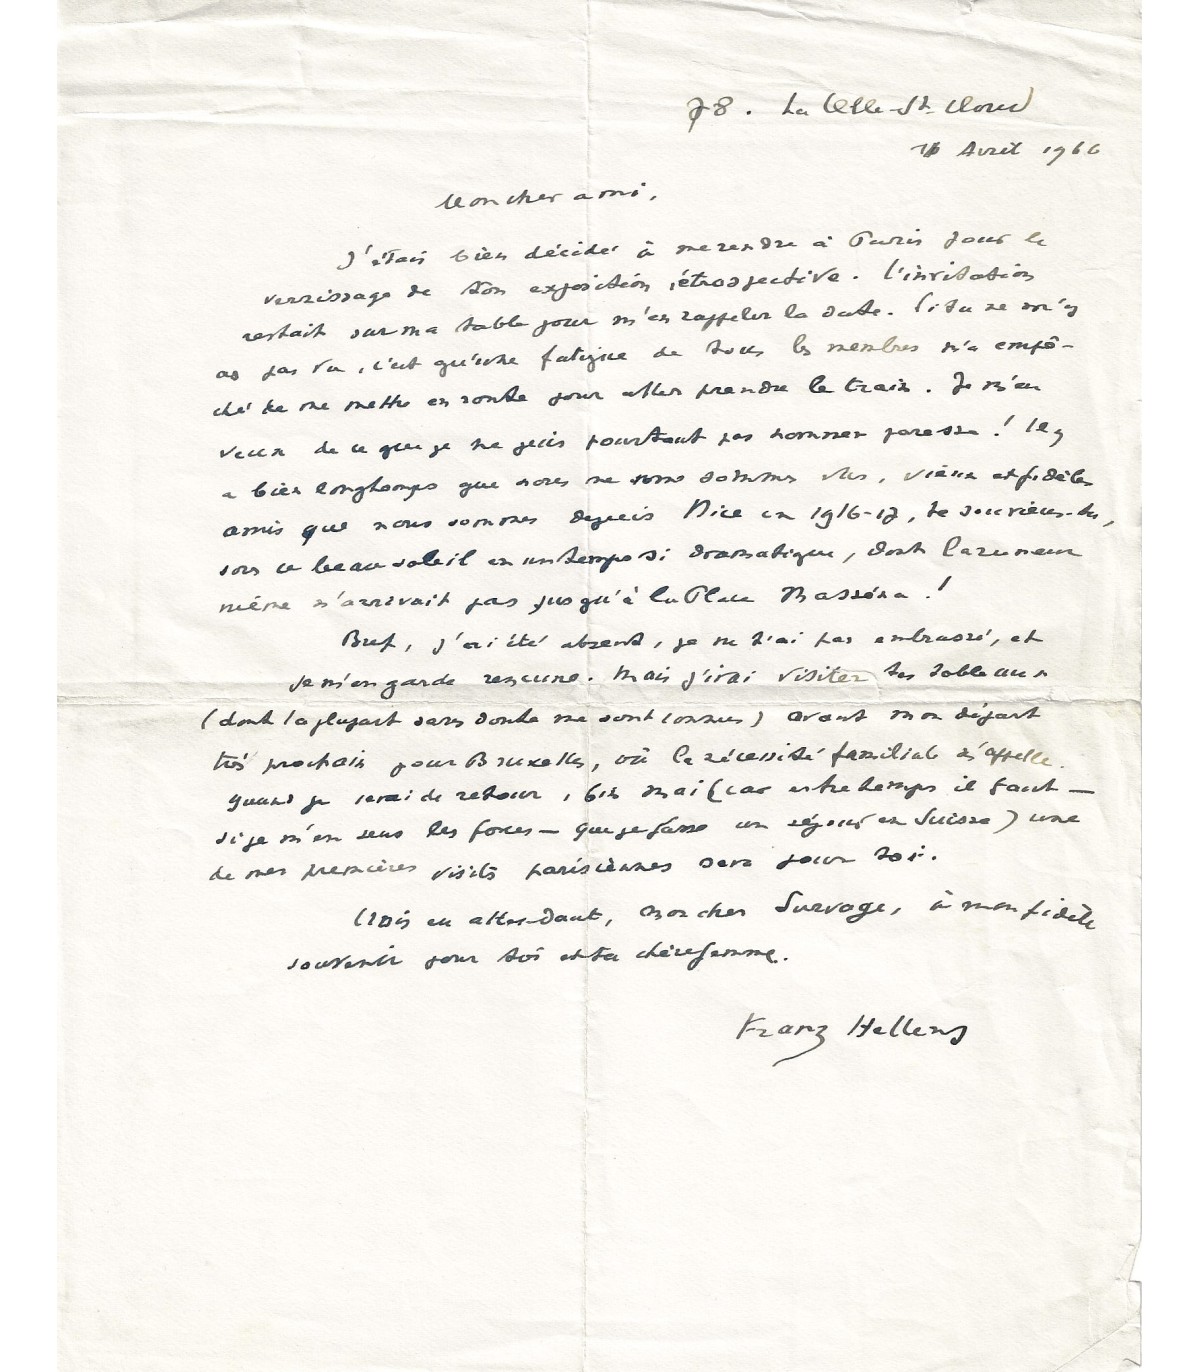 78. La Celle-St-Cloud
Avril 1966
Mon cher ami,
J'étais bien décidé à me rendre à Paris pour le
vernissage de ton exposition rétrospective. L'invitation
restait sur ma table pour m'en rappeler la date. Si tu ne m'y
as pas vu, c'est qu'une fatigue de tous les membres m'a empê-
ché de me mettre en route pour aller prendre le train. Je m'en
veux de ce que je ne puis pourtant pas nommer paresse ! Il y
a bien longtemps que nous ne nous sommes vus, vieux et fidèles
amis que nous sommes depuis Nice en 1916-17, te souviens-tu,
sous ce beau soleil en un temps si dramatique, dont la rumeur
même n'arrivait pas jusqu'à la Place Masséna !
Bref, j'ai été absent, je ne t'ai pas embrassé, et
je m'en garde rancune. Mais j'irai visiter tes tableaux
(dont la plupart sans doute me sont connus) avant mon départ
très prochain pour Bruxelles, où la nécessité familiale m'appelle.
Quand je serai de retour, fin mai (car entre temps il faut —
si je m'en sens les forces — que je fasse un séjour en Suisse) une
de mes premières visites parisiennes sera pour toi.
Crois en attendant, mon cher Survage, à mon fidèle
souvenir pour toi et ta chère femme.
Franz Hellens